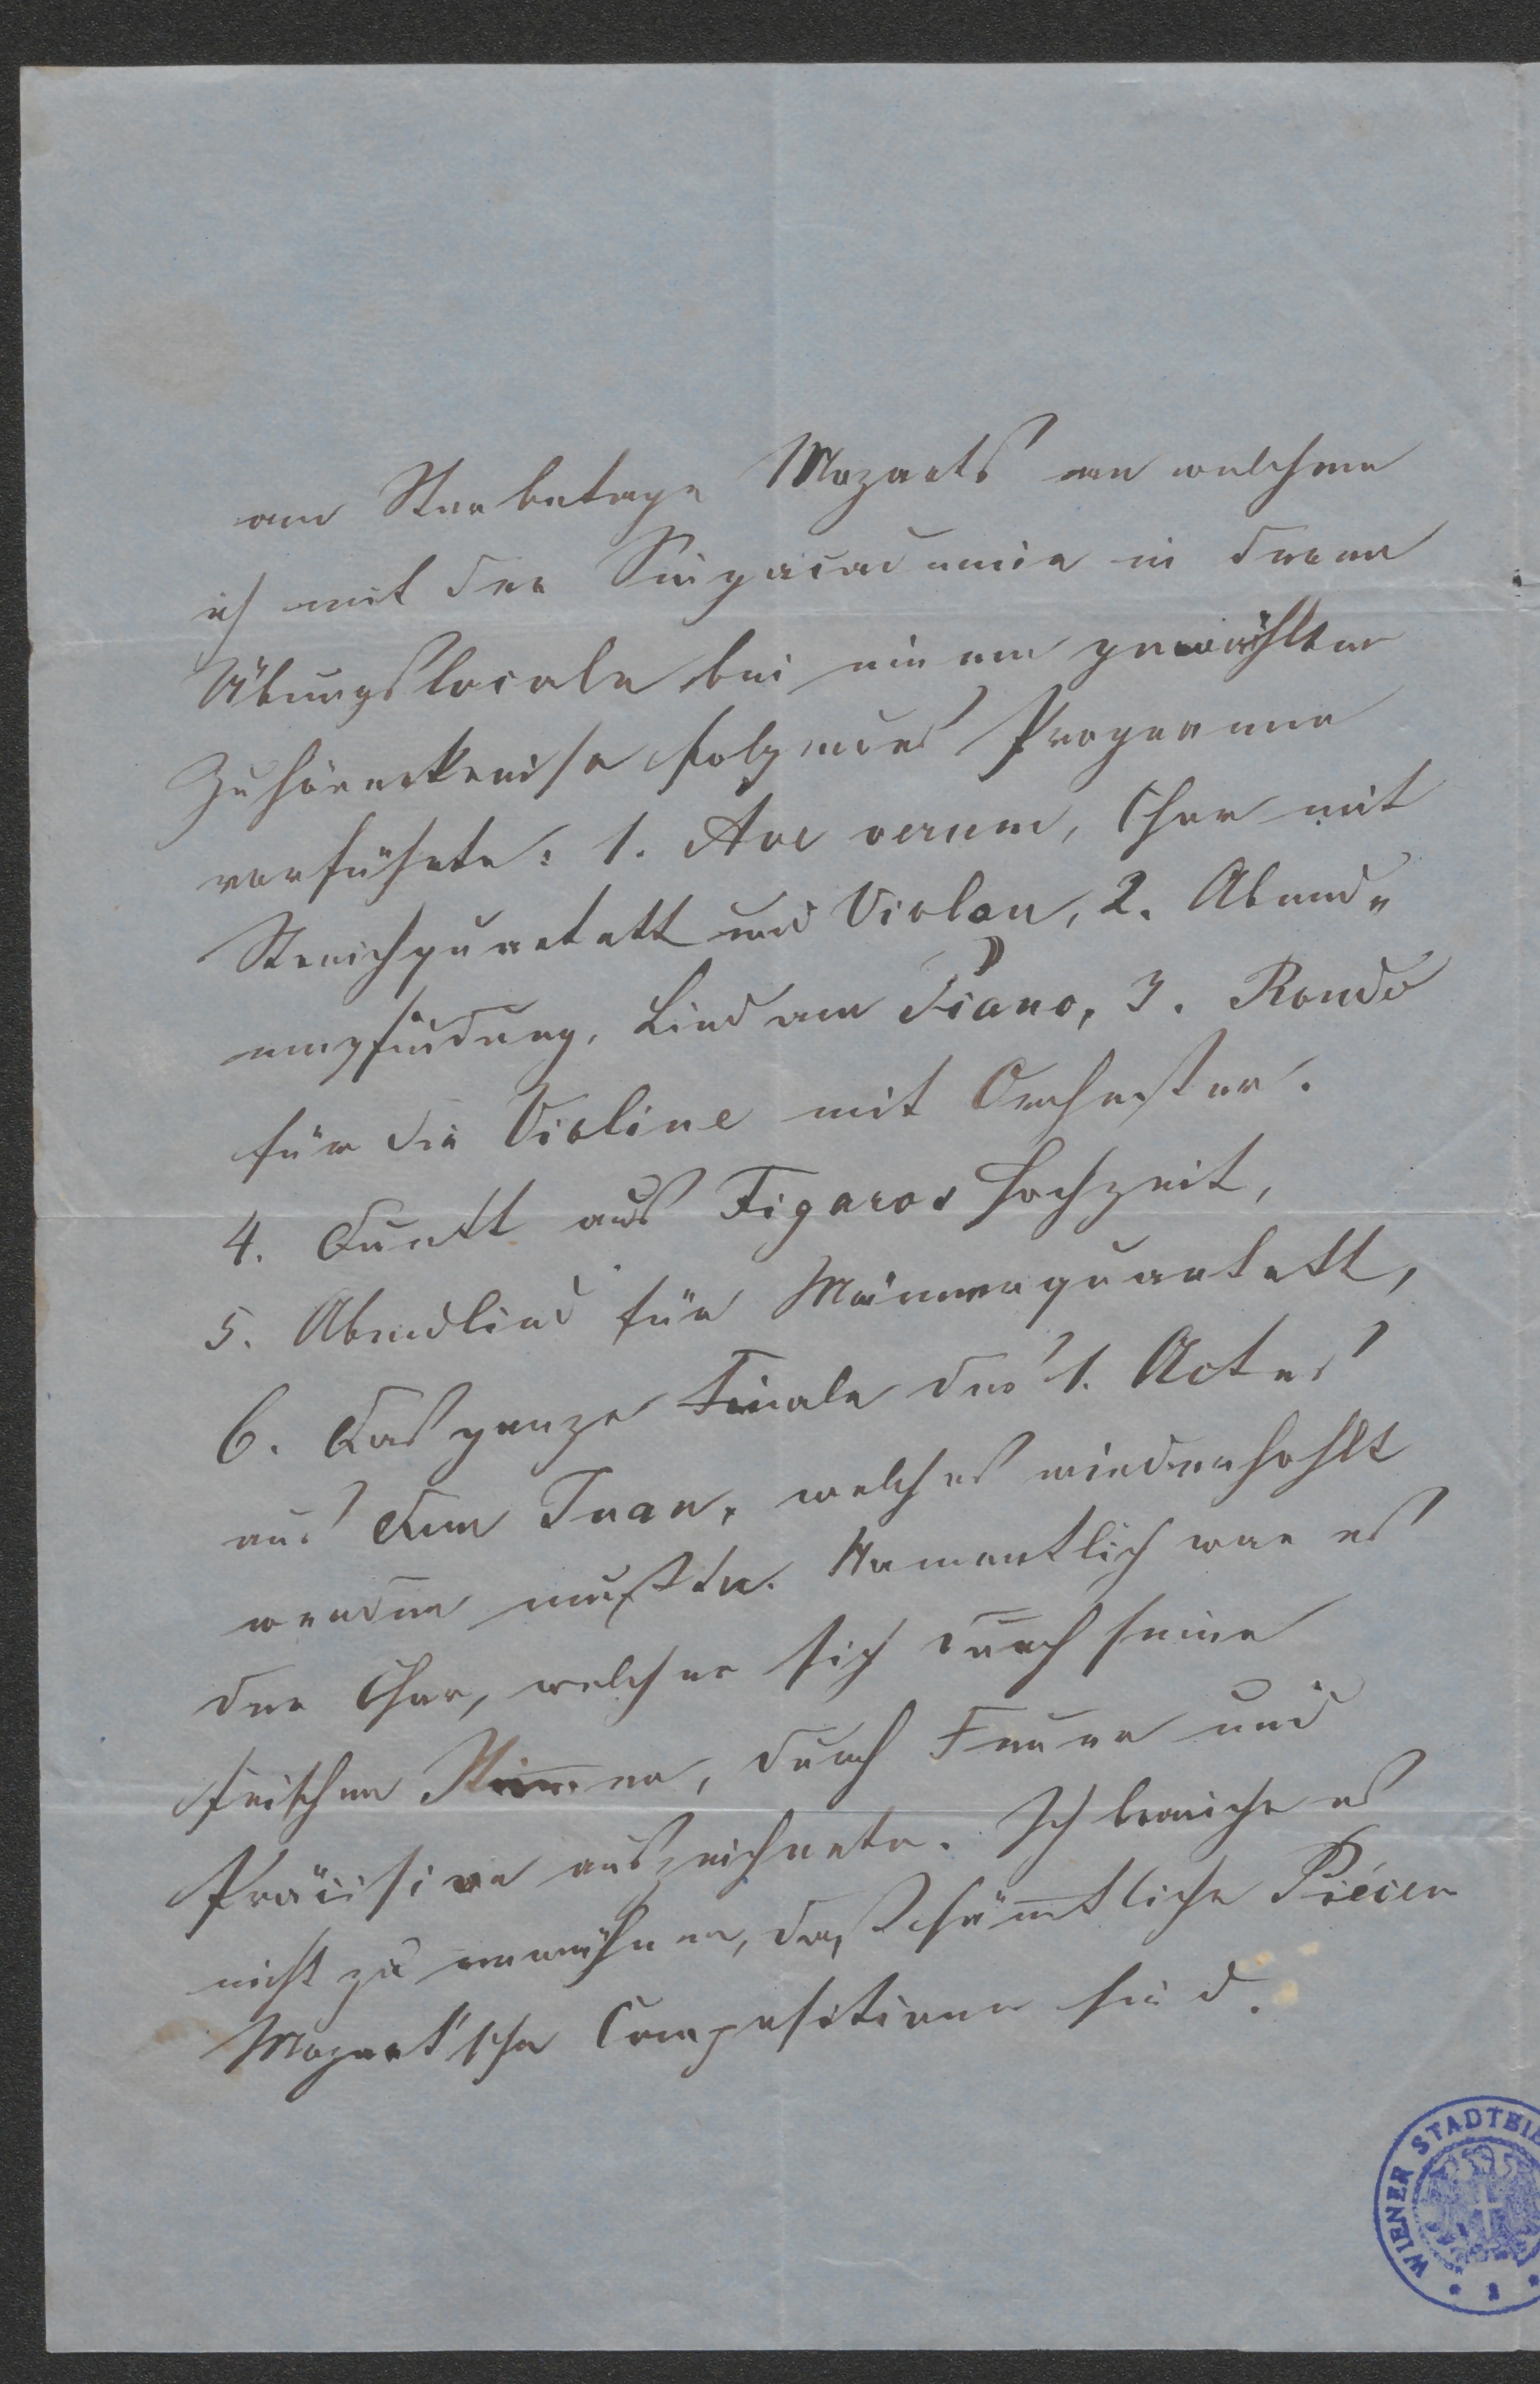 am Sterbetage Mozarts an welchem
ich mit der Singacademie in deren
Übungslocale bei einem gewählten
Zuhörerkreise folgendes Programm
vorführte: 1. Ave verum, Chor mit
Streichquartett und Violon, 2. Abend„
empfindung, Lied am Piano, 3. Rondo
für die Violine mit Orchester.
4. Duett aus Figaros Hochzeit,
5. Abendlied für Männerquartett,
6. Das ganze Finale des 1. Actes
aus Don Juan, welches wiederhohlt
werden mußte. Namentlich war es
der Chor, welcher sich durch seine
frischen Stim̅en, durch Feuer und
Präcision auszeichnete. Ich brauche es
nicht zu erwähnen, daß säm̅tliche Piécen
Mozart'sche Compositionen sind.
WIENER STADTBI